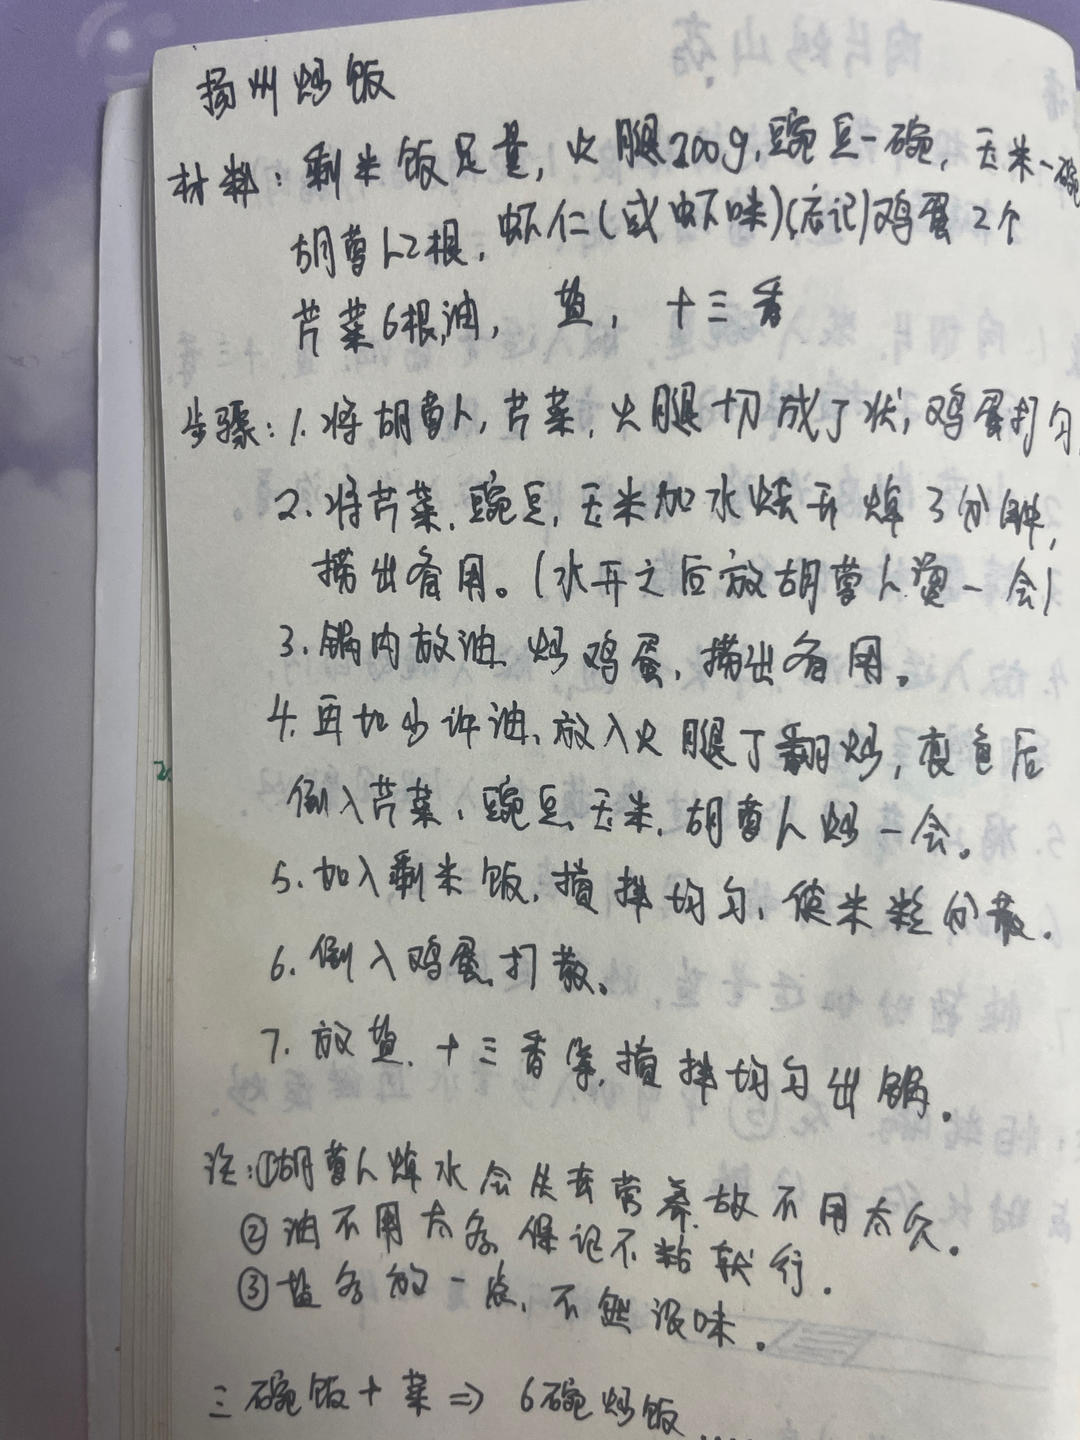 扬州炒饭
材料：剩米饭足量，火腿200g，豌豆一碗，玉米一碗
胡萝卜2根，虾仁(或虾味)(忘记)鸡蛋2个
芹菜6根，油，盐，十三香
步骤：1.将胡萝卜，芹菜，火腿切成丁状，鸡蛋打匀
2.将芹菜、豌豆、玉米加水烧开焯3分钟，
捞出备用。(水开之后放胡萝卜烫一会)
3.锅内放油、炒鸡蛋，捞出备用。
4.再加少许油、放入火腿丁翻炒，变色后
倒入芹菜、豌豆、玉米、胡萝卜炒一会。
5.加入剩米饭，搅拌均匀，使米粒分散。
6.倒入鸡蛋，打散。
7.放盐、十三香等，搅拌均匀出锅。
注：①胡萝卜焯水会失去营养，故不用太久。
②油不用太多，保记不粘就行。
③盐多放一点，不然没味。
三碗饭+菜⇒6碗炒饭……
2.